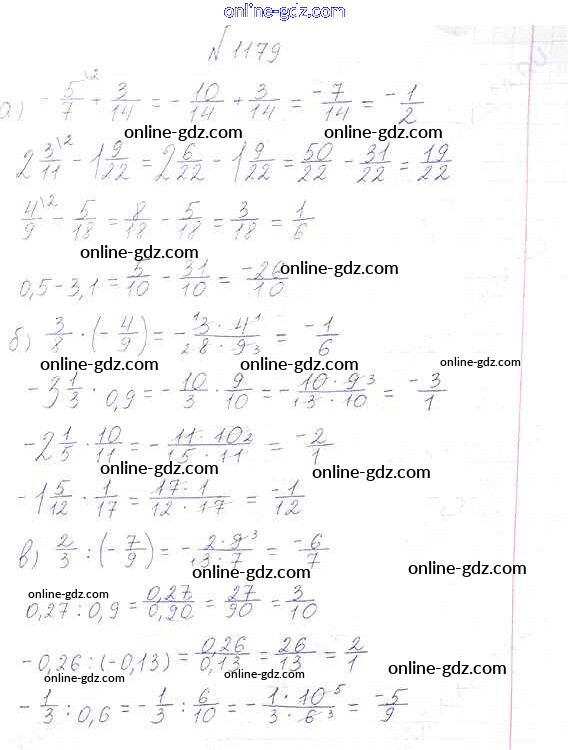 online-gdz.com
№ 1179
а) - 5/7 \2 + 3/14 = - 10/14 + 3/14 = -7/14 = -1/2
online-gdz.com online-gdz.com
2 3/11 \2 - 1 9/22 = 2 6/22 - 1 9/22 = 50/22 - 31/22 = 19/22
online-gdz.com
4/9 \2 - 5/18 = 8/18 - 5/18 = 3/18 = 1/6
online-gdz.com online-gdz.com
0,5 - 3,1 = 5/10 - 31/10 = -26/10
б) 3/8 · (- 4/9) = - 1 3 · 4 1 / 2 8 · 9 3 = -1/6
online-gdz.com online-gdz.com online-gdz.com
- 3 1/3 · 0,9 = - 10/3 · 9/10 = - 10 · 9 3 / 1 3 · 10 = -3/1
- 2 1/5 · 10/11 = - 11 · 10 2 / 1 5 · 11 = -2/1
online-gdz.com online-gdz.com
- 1 5/12 · 1/17 = 17 · 1 / 12 · 17 = -1/12
в) 2/3 : (- 7/9) = - 2 · 9 3 / 1 3 · 7 = -6/7
online-gdz.com online-gdz.com
online-gdz.com
0,27 : 0,9 = 0,27/0,90 = 27/90 = 3/10
- 0,26 : (-0,13) = 0,26/0,13 = 26/13 = 2/1
online-gdz.com online-gdz.com online-gdz.com
- 1/3 : 0,6 = - 1/3 : 6/10 = - 1 · 10 5 / 3 · 6 3 = -5/9